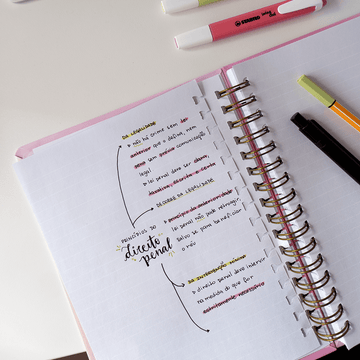 STABILO swing cool
DA LEGALIDADE
↳ não há crime sem lei
anterior que o defina, nem
pena sem prévia cominação
legal
↳ lei penal deve ser clara,
taxativa, escrita e certa
DECORRE DA LEGALIDADE
↳ princípio da anterioridade
lei penal não pode retroagir,
salvo se para beneficiar
o réu
PRINCÍPIOS DO
direito
penal
DA INTERVENÇÃO MÍNIMA
↳ direito penal deve intervir
na medida do que for
estritamente necessário